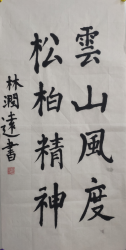 雲山風度
松柏精神
林潤達書